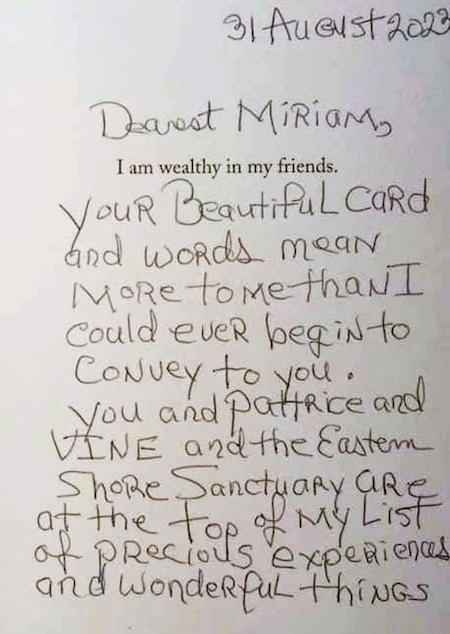 31 August 2023
Dearest Miriam,
I am wealthy in my friends.
Your Beautiful Card
and words mean
More to me than I
could ever begin to
convey to you.
You and pattrice and
VINE and the Eastern
Shore Sanctuary are
at the top of My List
of precious experiences
and wonderful things